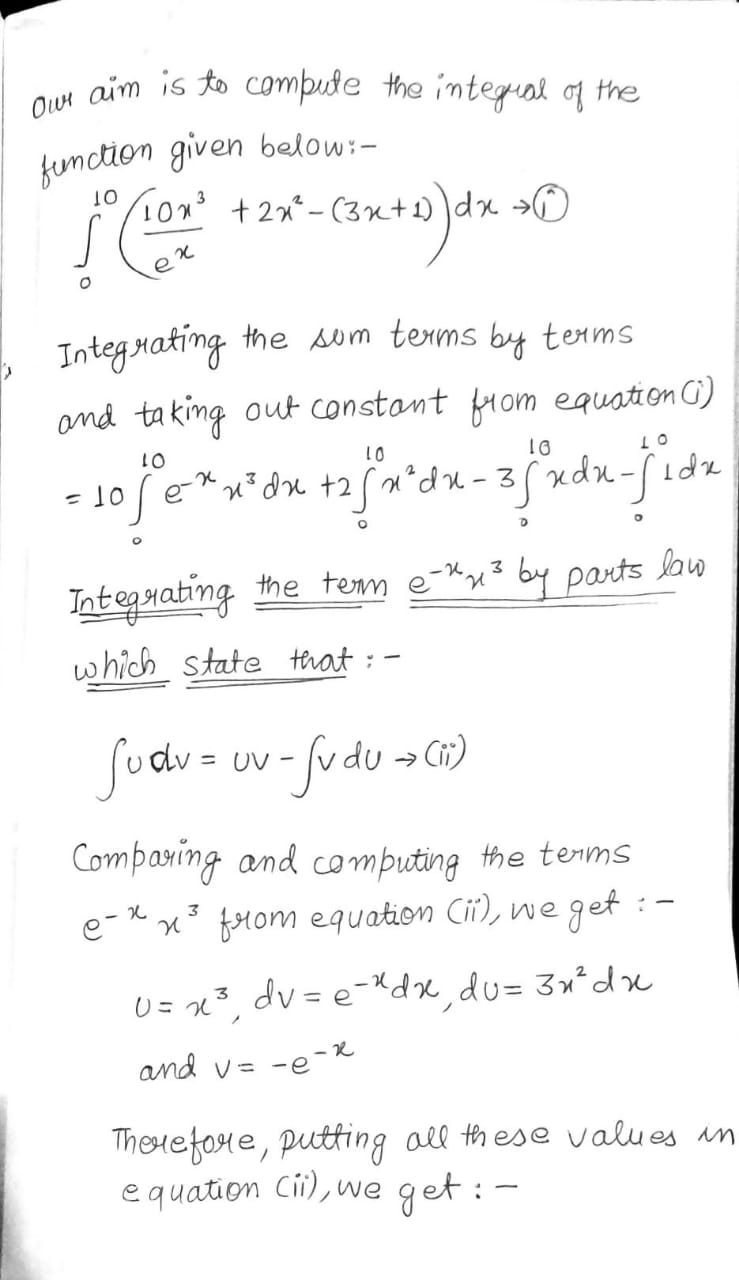 Our aim is to compute the integral of the
function given below:-
∫₀¹⁰ (10x³/eˣ + 2x² - (3x+1)) dx → (i)
Integrating the sum terms by terms
and taking out constant from equation (i)
= 10 ∫₀¹⁰ e⁻ˣ x³ dx + 2 ∫₀¹⁰ x² dx - 3 ∫₀¹⁰ x dx - ∫₀¹⁰ 1 dx
Integrating the term e⁻ˣx³ by parts law
which state that :-
∫u dv = uv - ∫v du → (ii)
Comparing and computing the terms
e⁻ˣ x³ from equation (ii), we get :-
u = x³, dv = e⁻ˣ dx, du = 3x² dx
and v = -e⁻ˣ
Therefore, putting all these values in
equation (ii), we get :-